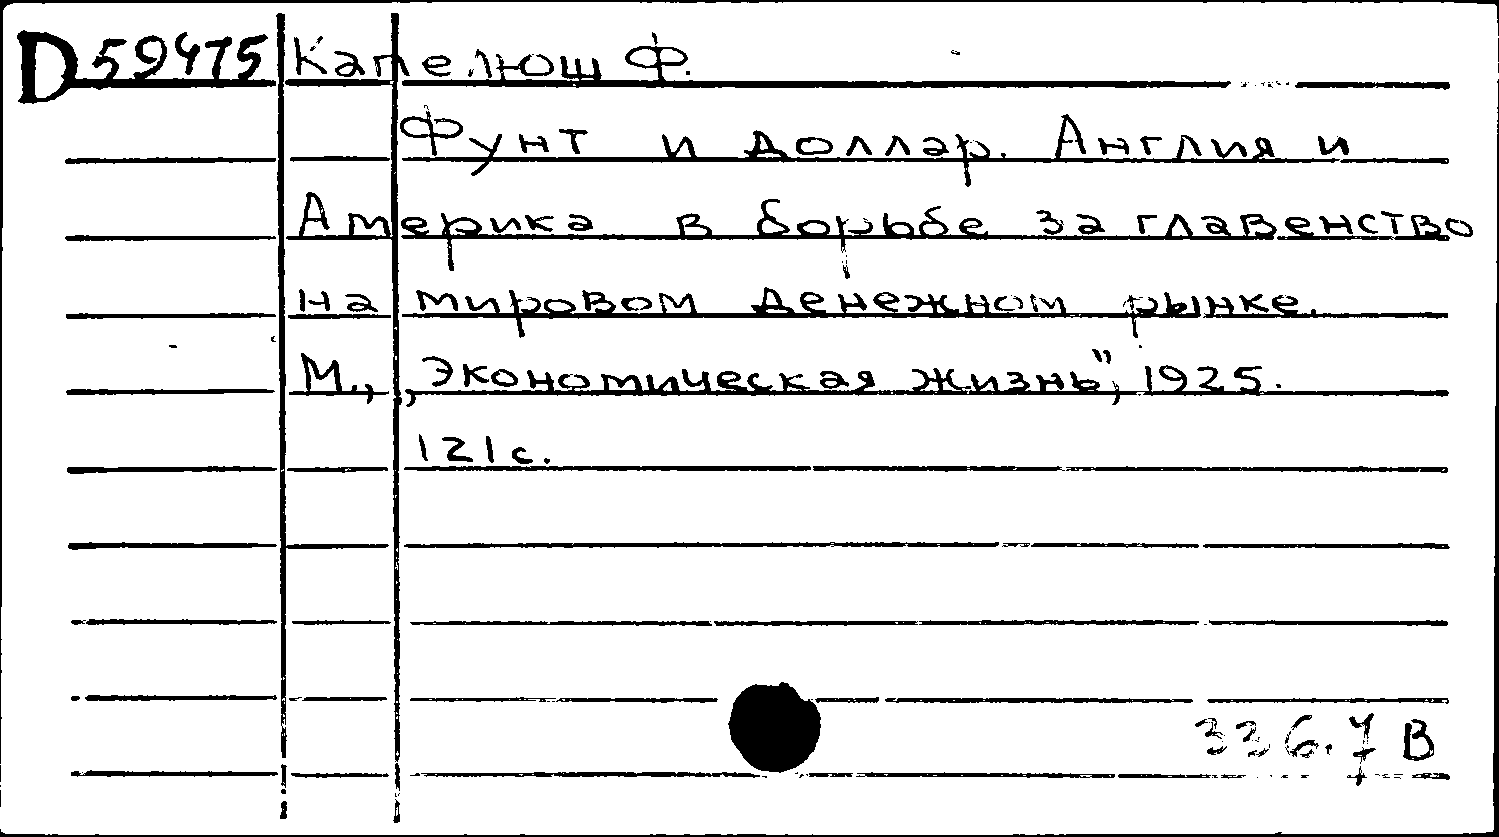 D 59475 Капелюш Ф.
Фунт и доллар. Англия и
Америка в борьбе за главенство
на мировом денежном рынке.
М., „Экономическая жизнь", 1925.
121 с.
336.7 В